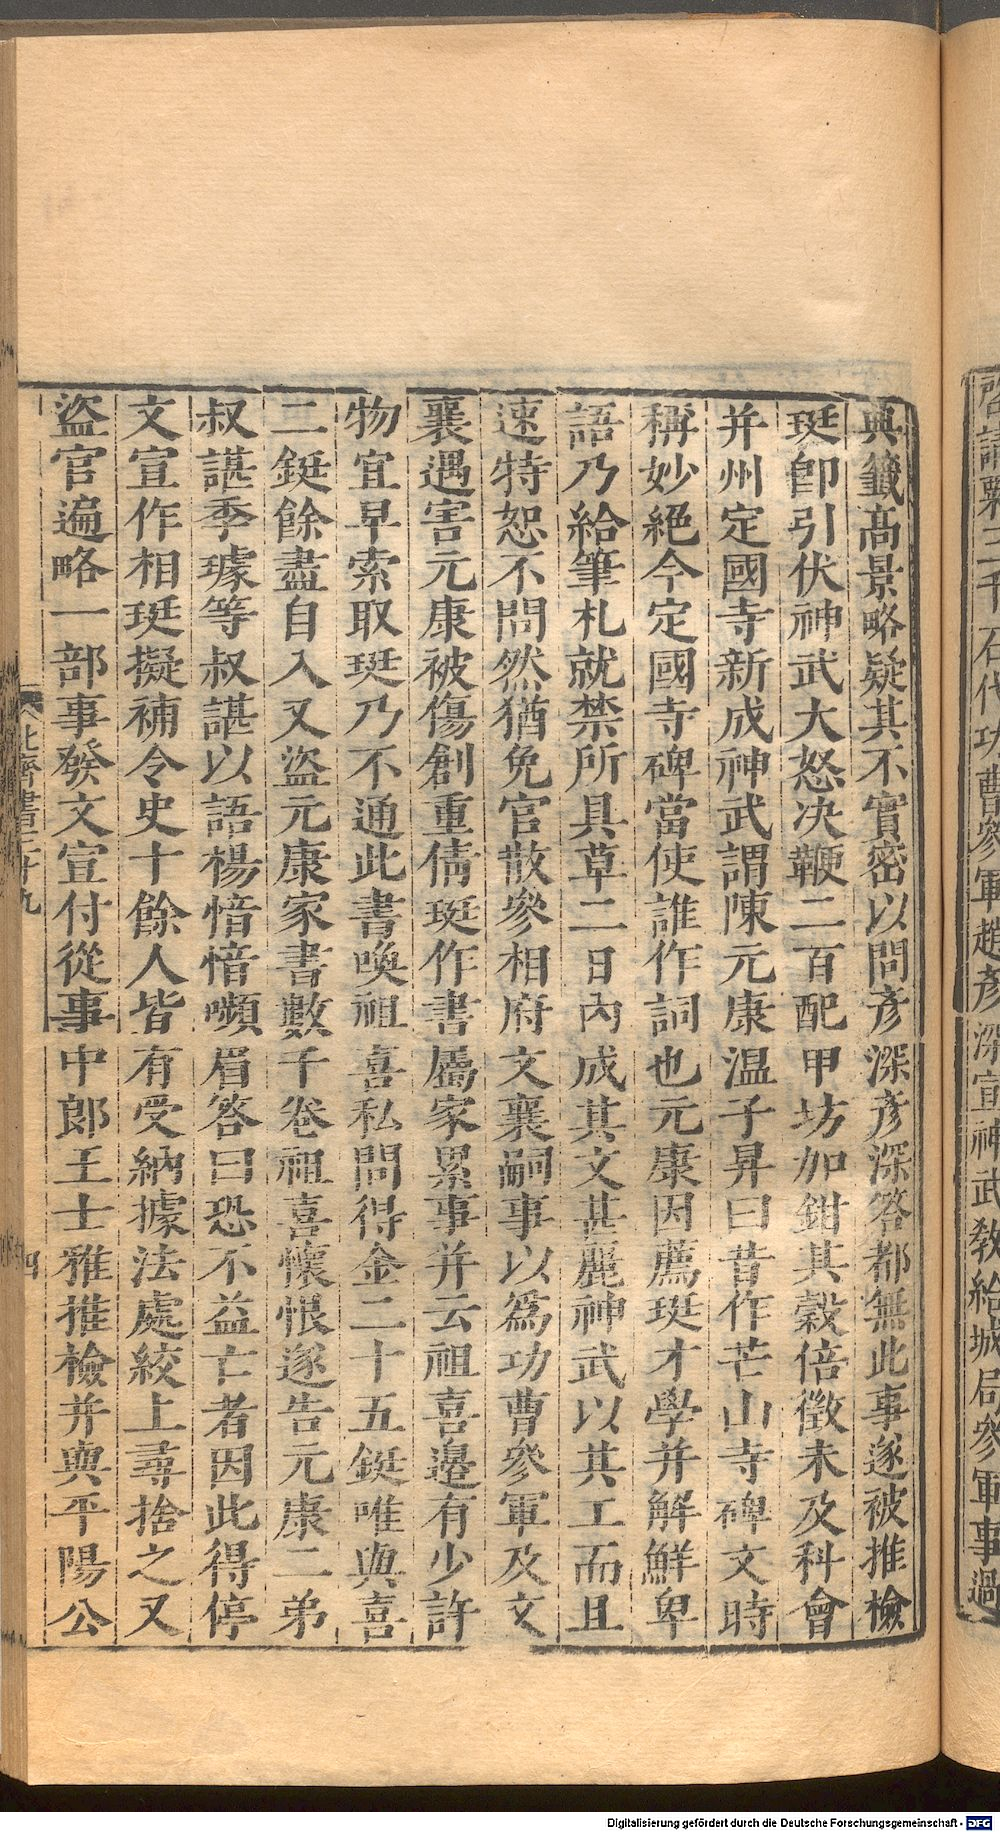 啓請粟三千石代功曹參軍趙彥深宣神武敎給城局參軍事過
典籤高景略疑其不實密以問彥深彥深答都無此事遂被推檢
珽卽引伏神武大怒决鞭二百配甲坊加鉗其穀倍徵未及科會
并州定國寺新成神武謂陳元康温子昇曰昔作芒山寺碑文時
稱妙絕今定國寺碑當使誰作詞也元康因薦珽才學并解鮮卑
語乃給筆札就禁所具草二日內成其文甚麗神武以其工而且
速特恕不問然猶免官散參相府文襄嗣事以爲功曹參軍及文
襄遇害元康被傷創重倩珽作書屬家累事并云祖喜邉有少許
物宜早索取珽乃不通此書喚祖喜私問得金二十五鋌唯與喜
二鋌餘盡自入又盜元康家書數千卷祖喜懷恨遂告元康二弟
叔諶季璩等叔諶以語楊愔愔嚬眉答曰恐不益亡者因此得停
文宣作相珽擬補令史十餘人皆有受納據法處絞上尋捨之又
盜官遍略一部事發文宣付從事中郎王士雅推檢并與平陽公
北齊書三十九
四
Digitalisierung gefördert durch die Deutsche Forschungsgemeinschaft - DFG